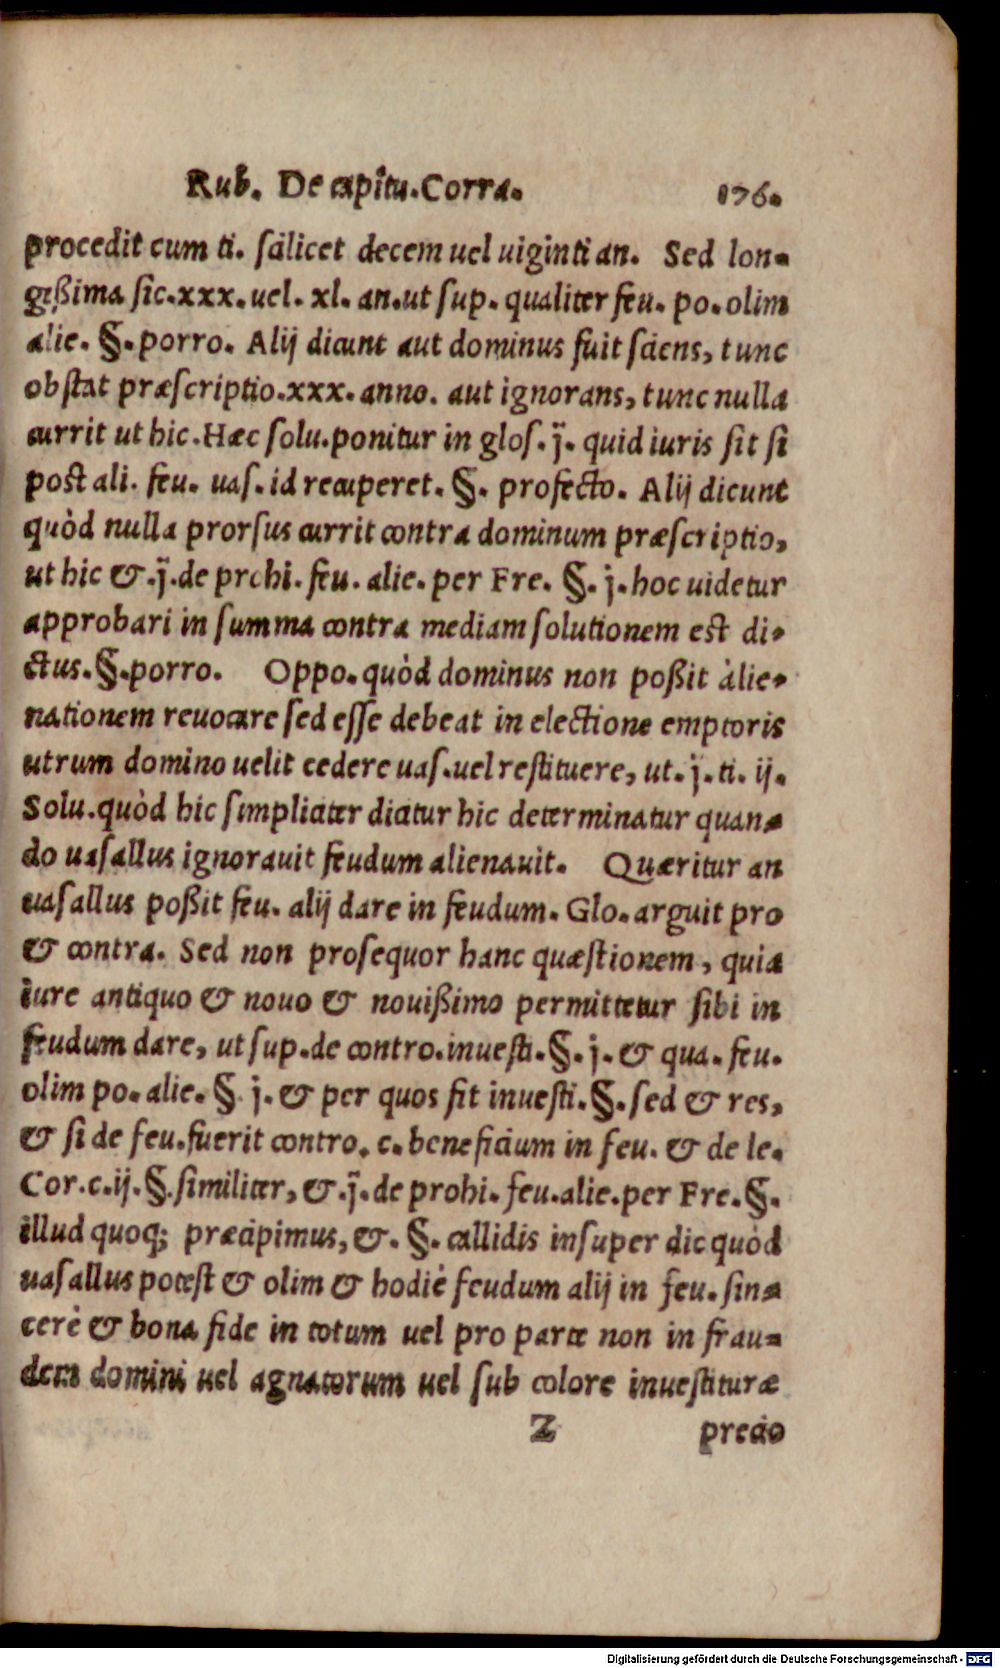 Rub. De capitu. Corra. 176.
procedit cum ti. scilicet decem uel uiginti an. Sed lon-
gißima sic. xxx. uel. xl. an. ut sup. qualiter feu. po. olim
alie. §. porro. Alij dicunt aut dominus fuit sciens, tunc
obstat præscriptio. xxx. anno. aut ignorans, tunc nulla
currit ut hic. Hæc solu. ponitur in glos. j̃. quid iuris sit si
post ali. feu. uas. id recuperet. §. profecto. Alij dicunt
quòd nulla prorsus currit contra dominum præscriptio,
ut hic &. j̃. de prohi. feu. alie. per Fre. §. j. hoc uidetur
approbari in summa contra mediam solutionem est di-
ctus. §. porro. Oppo. quòd dominus non poßit àlie-
nationem reuocare sed esse debeat in electione emptoris
utrum domino uelit cedere uas. uel restituere, ut. j̃. ti. ij.
Solu. quòd hic simpliciter dicitur hic determinatur quan-
do uasallus ignorauit feudum alienauit. Quæritur an
uasallus poßit feu. alij dare in feudum. Glo. arguit pro
& contra. Sed non prosequor hanc quæstionem, quia
iure antiquo & nouo & nouißimo permittetur sibi in
feudum dare, ut sup. de contro. inuesti. §. j. & qua. feu.
olim po. alie. § j. & per quos fit inuesti. §. sed & res,
& si de feu. fuerit contro. c. beneficium in feu. & de le.
Cor. c. ij. §. similiter, &. j̃. de prohi. feu. alie. per Fre. §.
illud quoq; præcipimus, &. §. callidis insuper dic quòd
uasallus potest & olim & hodiè feudum alij in feu. sin-
cerè & bona fide in totum uel pro parte non in frau-
dem domini uel agnatorum uel sub colore inuestituræ
Z precio
Digitalisierung gefördert durch die Deutsche Forschungsgemeinschaft - DFG